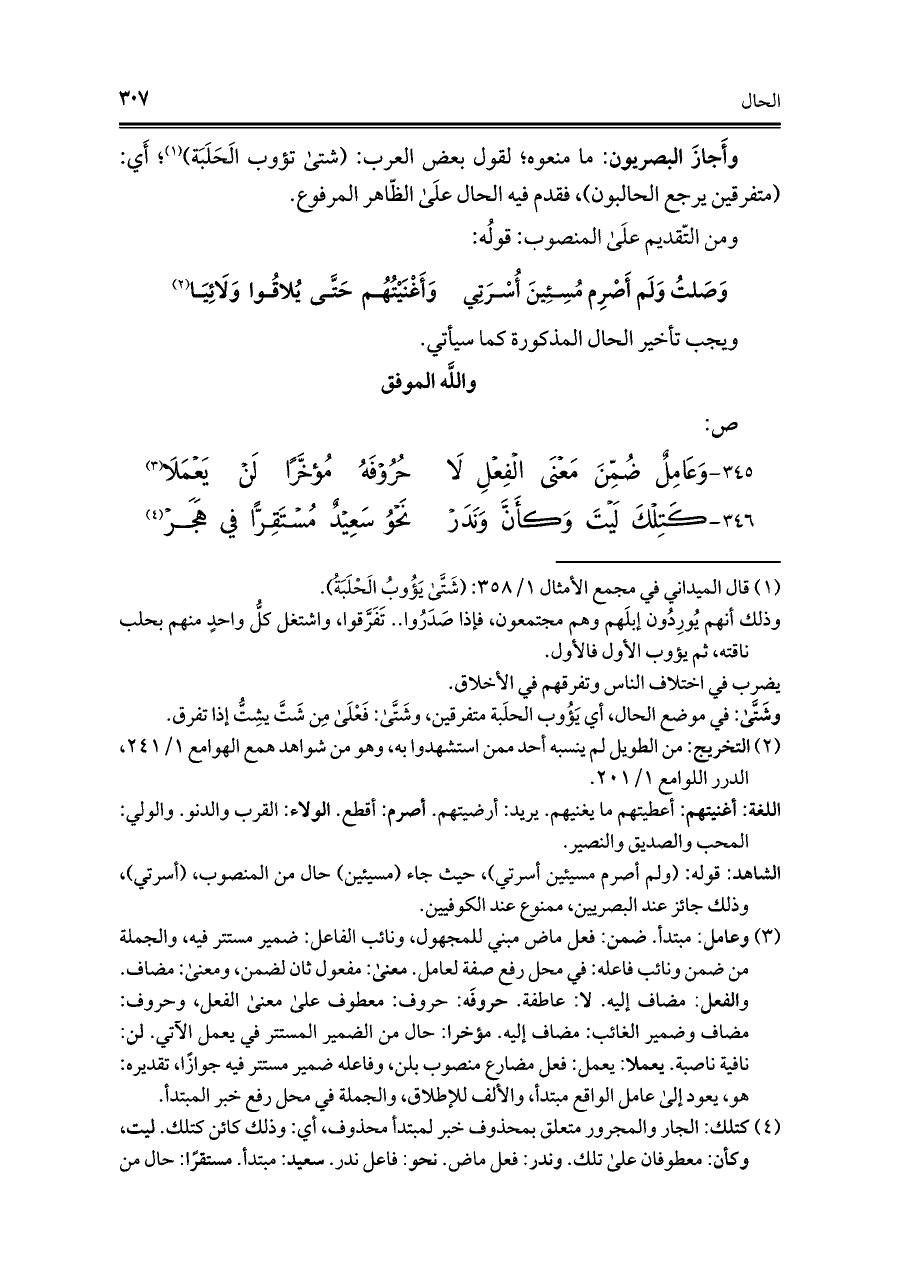 الحال ٣٠٧
وأَجازَ البصريون: ما منعوه؛ لقول بعض العرب: (شتىٰ تؤوب الَحَلَبَة)(١)؛ أَي:
(متفرقين يرجع الحالبون)، فقدم فيه الحال علَىٰ الظّاهر المرفوع.
ومن التّقديم علَىٰ المنصوب: قولُه:
وَصَلتُ وَلَم أَصْرِم مُسِـئِينَ أُسْـرَتِي وَأَغْنَيْتُهُـم حَتَّـى يُلاقُـوا وَلَائِيَـا(٢)
ويجب تأخير الحال المذكورة كما سيأتي.
واللَّه الموفق
ص:
٣٤٥- وَعَامِلٌ ضُمِّنَ مَعْنَى الْفِعْلِ لَا حُرُوْفَهُ مُؤخَّرًا لَنْ يَعْمَلَا(٣)
٣٤٦- كَـتِلْكَ لَيْتَ وَكأَنَّ وَنَدَرْ نَحْوُ سَعِيْدٌ مُسْـتَقِـرًّا فِي هَجَـرْ(٤)
(١) قال الميداني في مجمع الأمثال ١/ ٣٥٨: (شَتَّىٰ يَؤُوبُ الَحْلَبَةُ).
وذلك أنهم يُورِدُون إبلَهم وهم مجتمعون، فإذا صَدَرُوا.. تَفَرَّقوا، واشتغل كلُّ واحدٍ منهم بحلب
ناقته، ثم يؤوب الأول فالأول.
يضرب في اختلاف الناس وتفرقهم في الأخلاق.
وشَتَّىٰ: في موضع الحال، أي يَؤُوب الحلَبة متفرقين، وشَتَّىٰ: فَعْلَىٰ مِن شَتَّ يشِتُّ إذا تفرق.
(٢) التخريج: من الطويل لم ينسبه أحد ممن استشهدوا به، وهو من شواهد همع الهوامع ١/ ٢٤١،
الدرر اللوامع ١/ ٢٠١.
اللغة: أغنيتهم: أعطيتهم ما يغنيهم. يريد: أرضيتهم. أصرم: أقطع. الولاء: القرب والدنو. والولي:
المحب والصديق والنصير.
الشاهد: قوله: (ولم أصرم مسيئين أسرتي)، حيث جاء (مسيئين) حال من المنصوب، (أسرتي)،
وذلك جائز عند البصريين، ممنوع عند الكوفيين.
(٣) وعامل: مبتدأ. ضمن: فعل ماض مبني للمجهول، ونائب الفاعل: ضمير مستتر فيه، والجملة
من ضمن ونائب فاعله: في محل رفع صفة لعامل. معنىٰ: مفعول ثان لضمن، ومعنىٰ: مضاف.
والفعل: مضاف إليه. لا: عاطفة. حروفَه: حروف: معطوف علىٰ معنىٰ الفعل، وحروف:
مضاف وضمير الغائب: مضاف إليه. مؤخرا: حال من الضمير المستتر في يعمل الآتي. لن:
نافية ناصبة. يعملا: يعمل: فعل مضارع منصوب بلن، وفاعله ضمير مستتر فيه جوازًا، تقديره:
هو، يعود إلىٰ عامل الواقع مبتدأ، والألف للإطلاق، والجملة في محل رفع خبر المبتدأ.
(٤) كتلك: الجار والمجرور متعلق بمحذوف خبر لمبتدأ محذوف، أي: وذلك كائن كتلك. ليت،
وكأن: معطوفان علىٰ تلك. وندر: فعل ماض. نحو: فاعل ندر. سعيد: مبتدأ. مستقرًا: حال من